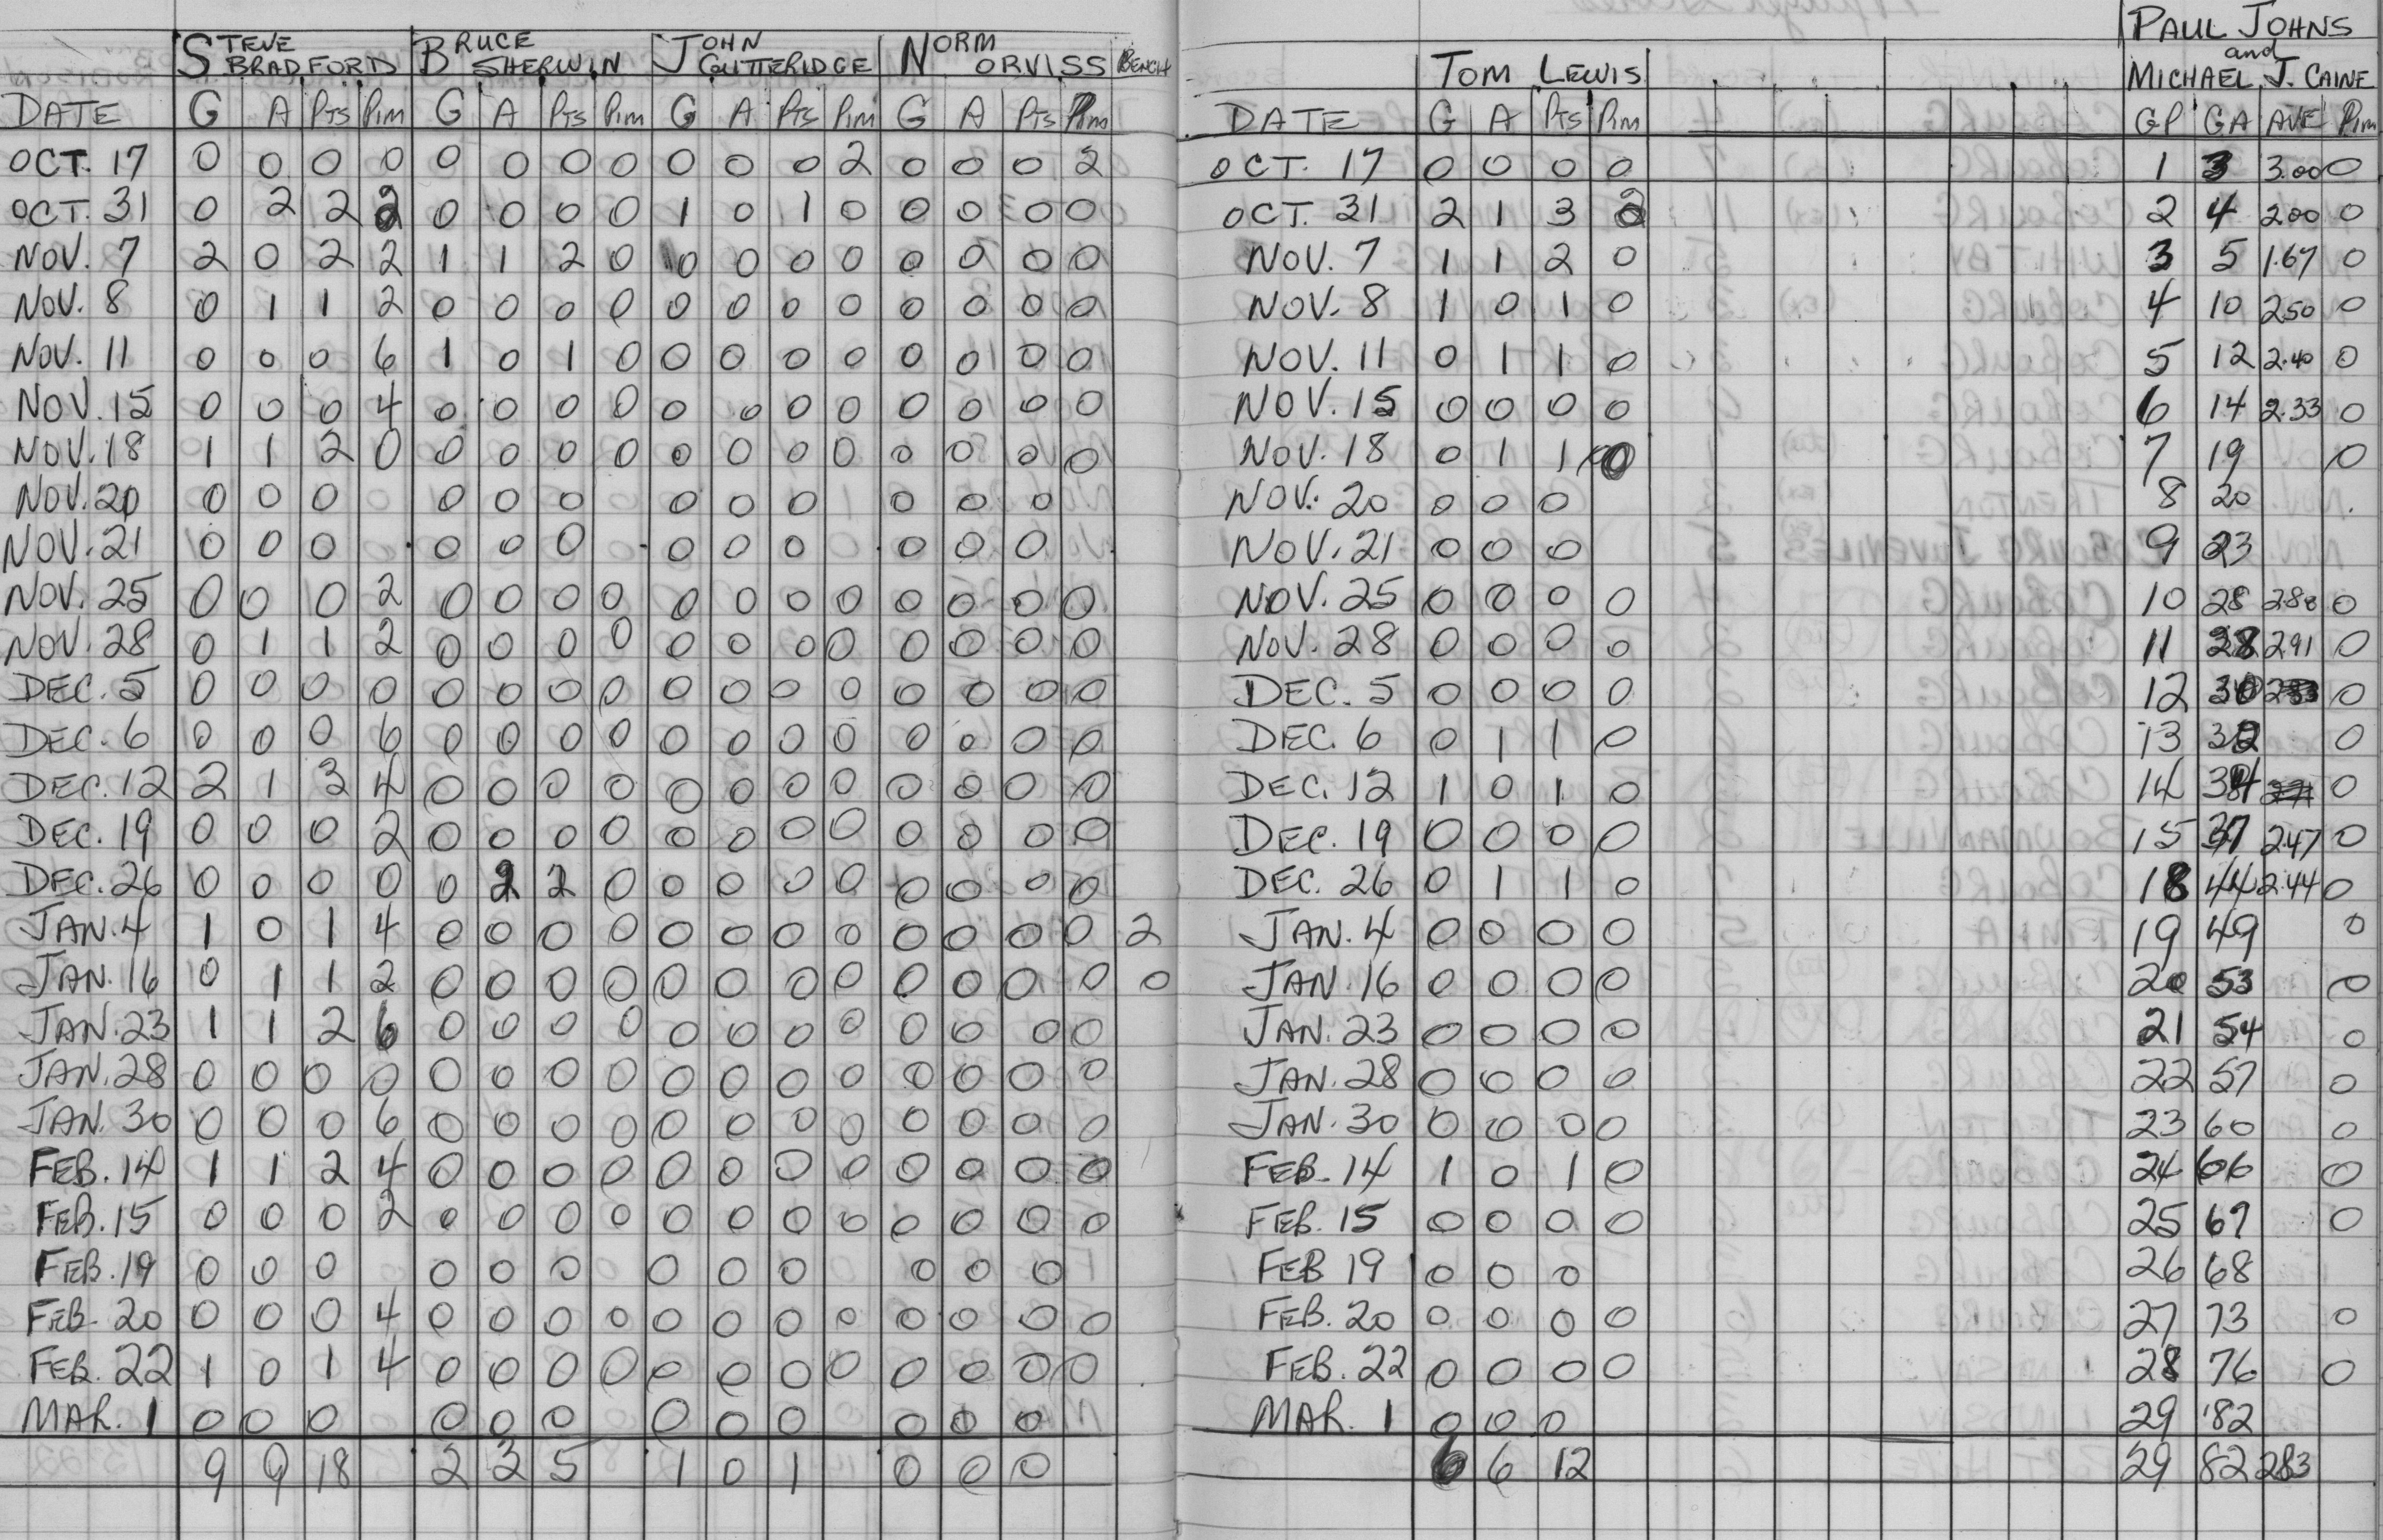 STEVE BRADFORD BRUCE SHERWIN JOHN GUTTERIDGE NORM ORVISS BENCH
DATE G A PTS PIM G A PTS PIM G A PTS PIM G A PTS PIM
OCT. 17 0 0 0 0 0 0 0 0 0 0 0 2 0 0 0 2
OCT. 31 0 2 2 2 0 0 0 0 1 0 1 0 0 0 0 0
NOV. 7 2 0 2 2 1 1 2 0 0 0 0 0 0 0 0 0
NOV. 8 0 1 1 2 0 0 0 0 0 0 0 0 0 0 0 0
NOV. 11 0 0 0 6 1 0 1 0 0 0 0 0 0 0 0 0
NOV. 15 0 0 0 4 0 0 0 0 0 0 0 0 0 0 0 0
NOV. 18 1 1 2 0 0 0 0 0 0 0 0 0 0 0 0 0
NOV. 20 0 0 0 0 0 0 0 0 0 0 0 0
NOV. 21 0 0 0 0 0 0 0 0 0 0 0 0
NOV. 25 0 0 0 2 0 0 0 0 0 0 0 0 0 0 0 0
NOV. 28 0 1 1 2 0 0 0 0 0 0 0 0 0 0 0 0
DEC. 5 0 0 0 0 0 0 0 0 0 0 0 0 0 0 0 0
DEC. 6 0 0 0 6 0 0 0 0 0 0 0 0 0 0 0 0
DEC. 12 2 1 3 4 0 0 0 0 0 0 0 0 0 0 0 0
DEC. 19 0 0 0 2 0 0 0 0 0 0 0 0 0 0 0 0
DEC. 26 0 0 0 0 0 2 2 0 0 0 0 0 0 0 0 0
JAN. 4 1 0 1 4 0 0 0 0 0 0 0 0 0 0 0 0 2
JAN. 16 0 1 1 2 0 0 0 0 0 0 0 0 0 0 0 0 0
JAN. 23 1 1 2 6 0 0 0 0 0 0 0 0 0 0 0 0
JAN. 28 0 0 0 0 0 0 0 0 0 0 0 0 0 0 0 0
JAN. 30 0 0 0 6 0 0 0 0 0 0 0 0 0 0 0 0
FEB. 14 1 1 2 4 0 0 0 0 0 0 0 0 0 0 0 0
FEB. 15 0 0 0 2 0 0 0 0 0 0 0 0 0 0 0 0
FEB. 19 0 0 0 0 0 0 0 0 0 0 0 0
FEB. 20 0 0 0 4 0 0 0 0 0 0 0 0 0 0 0 0
FEB. 22 1 0 1 4 0 0 0 0 0 0 0 0 0 0 0 0
MAR. 1 0 0 0 0 0 0 0 0 0 0 0 0
9 9 18 2 3 5 1 0 1 0 0 0
TOM LEWIS PAUL JOHNS and MICHAEL J. CAINE
DATE G A PTS PIM GP GA AVE PIM
OCT. 17 0 0 0 0 1 3 3.00 0
OCT. 31 2 1 3 2 2 4 2.00 0
NOV. 7 1 1 2 0 3 5 1.67 0
NOV. 8 1 0 1 0 4 10 2.50 0
NOV. 11 0 1 1 0 5 12 2.40 0
NOV. 15 0 0 0 0 6 14 2.33 0
NOV. 18 0 1 1 0 7 19 0
NOV. 20 0 0 0 8 20
NOV. 21 0 0 0 9 23
NOV. 25 0 0 0 0 10 28 2.80 0
NOV. 28 0 0 0 0 11 28 2.91 0
DEC. 5 0 0 0 0 12 30 0
DEC. 6 0 1 1 0 13 32 0
DEC. 12 1 0 1 0 14 34 0
DEC. 19 0 0 0 0 15 37 2.47 0
DEC. 26 0 1 1 0 18 44 2.44 0
JAN. 4 0 0 0 0 19 49 0
JAN. 16 0 0 0 0 20 53 0
JAN. 23 0 0 0 0 21 54 0
JAN. 28 0 0 0 0 22 57 0
JAN. 30 0 0 0 0 23 60 0
FEB. 14 1 0 1 0 24 66 0
FEB. 15 0 0 0 0 25 67 0
FEB 19 0 0 0 26 68
FEB. 20 0 0 0 0 27 73 0
FEB. 22 0 0 0 0 28 76 0
MAR. 1 0 0 0 29 82
6 6 12 29 82 2.83